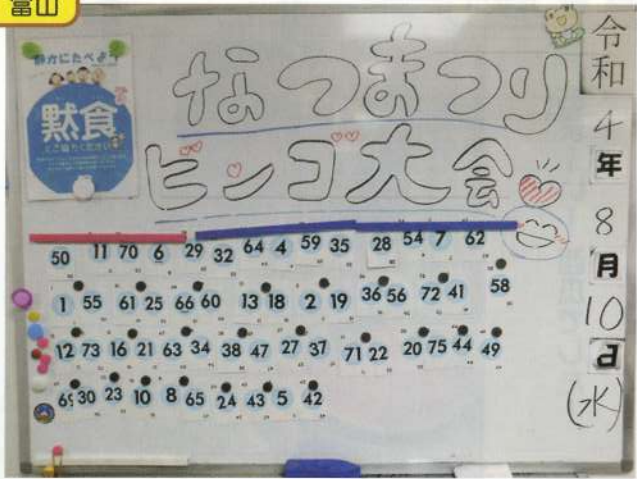 富山
静かにたべよう
黙食
にご協力ください
なつまつり
ビンゴ大会
令和
4
年
8
月
10
日
(水)
50 11 70 6 29 32 64 4 59 35 28 54 7 62
1 55 61 25 66 60 13 18 2 19 36 56 72 41 58
12 73 16 21 63 34 38 47 27 37 71 22 20 75 44 49
69 30 23 10 8 65 24 43 5 42